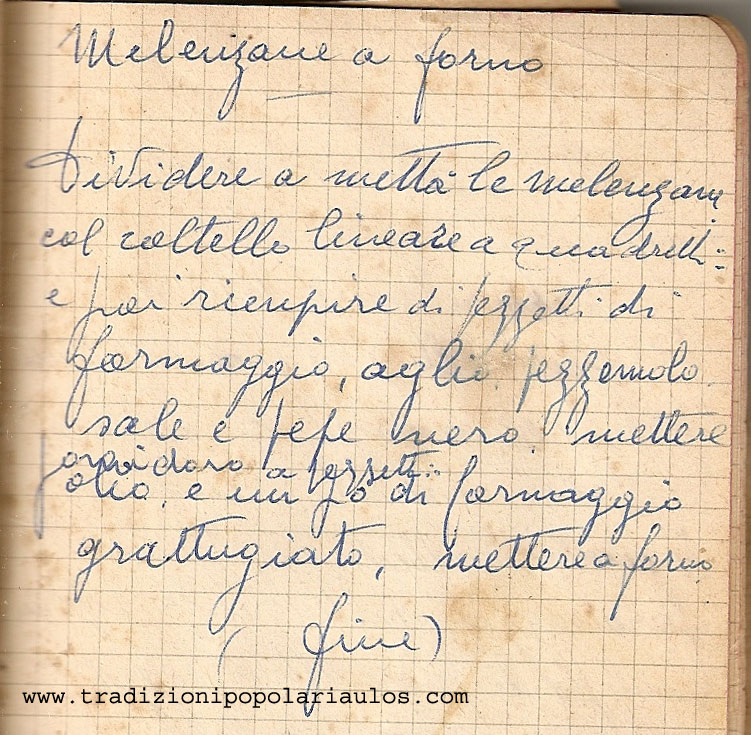 Melenzane a forno
Dividere a mettà le melenzane
col coltello lineare a quadretti
e poi riempire di pezzetti di
formaggio, aglio, pezzemolo.
sale e pepe nero mettere
pomidoro a pezzetti
olio, e un pò di formaggio
grattugiato, mettere a forno
(fine)
www.tradizionipopolariaulos.com